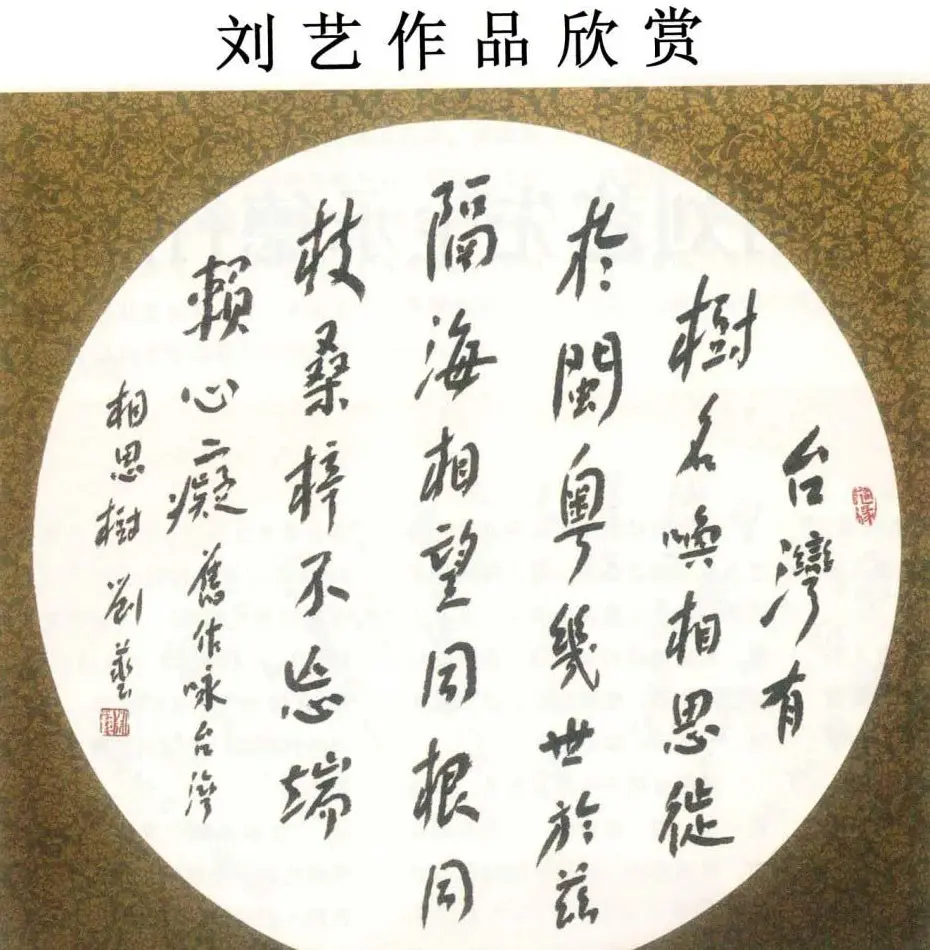 刘艺作品欣赏
台灣有
樹名喚相思徙
於閩粵幾世於茲
隔海相望同根同
枝桑梓不忘端
賴心心癡舊作咏台灣
相思樹劉藝